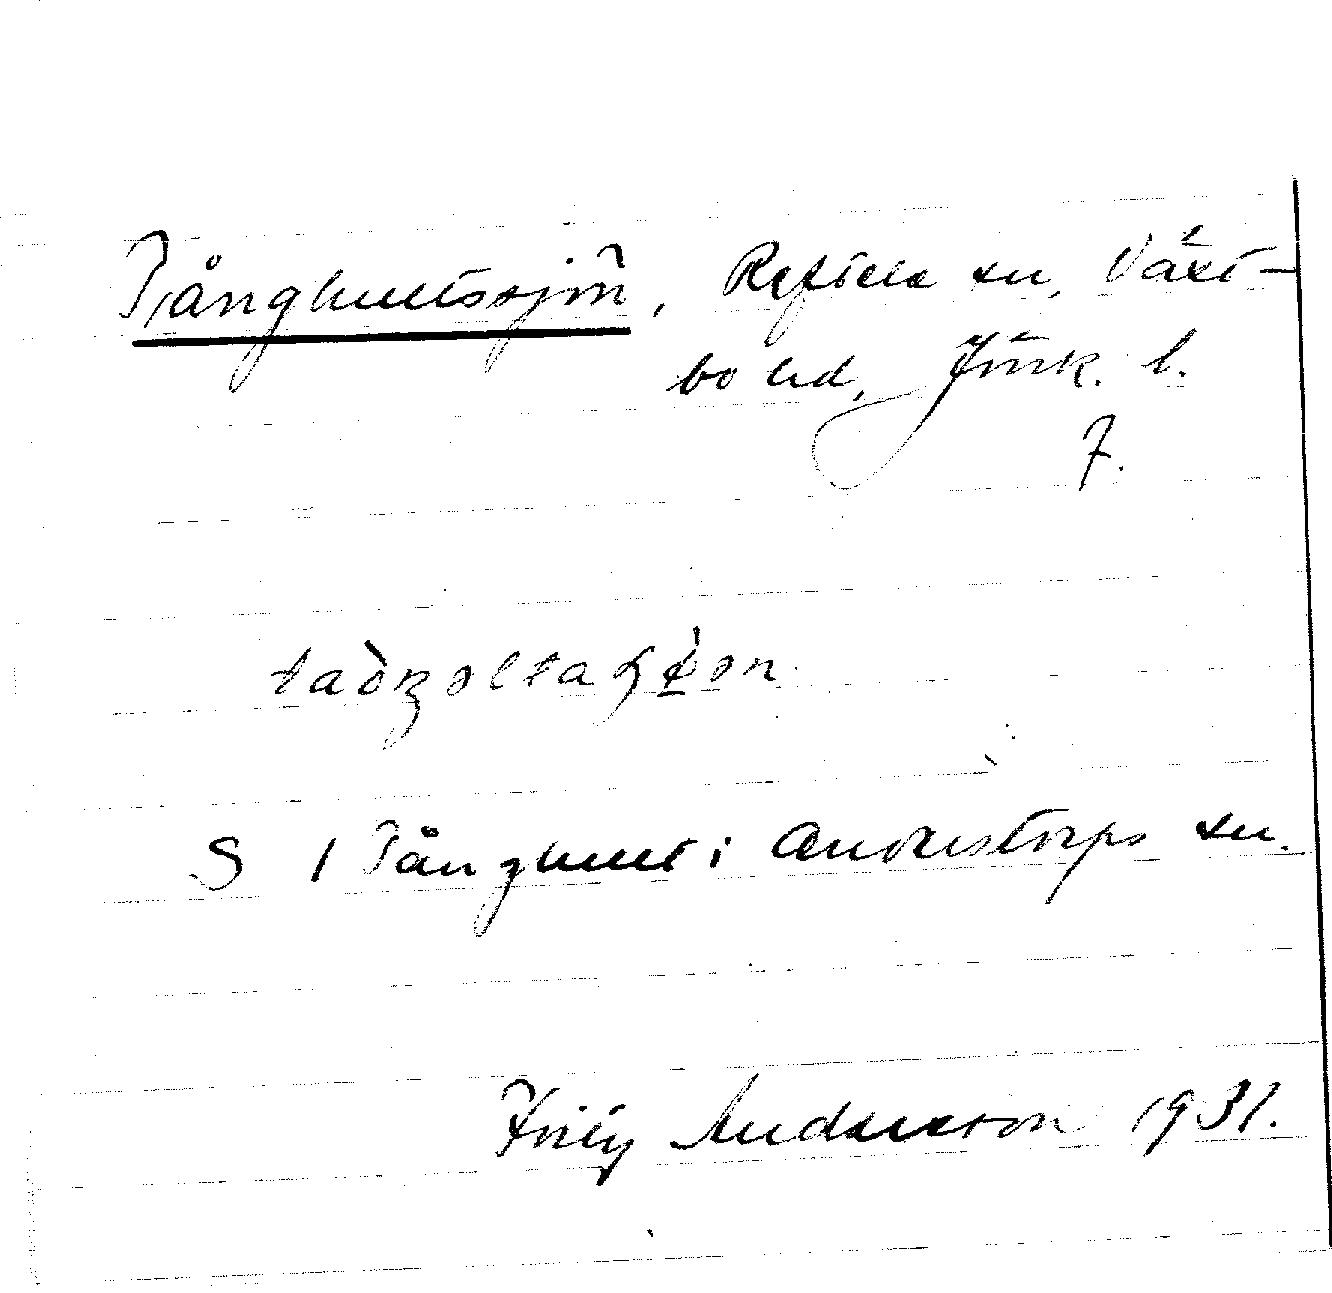 Tånghultssjön, Reftele sn, Väst-
bo hd, Jönk. l.
7.
S / Tånghult i Anderstorps sn.
Fritz Andersson 1931.